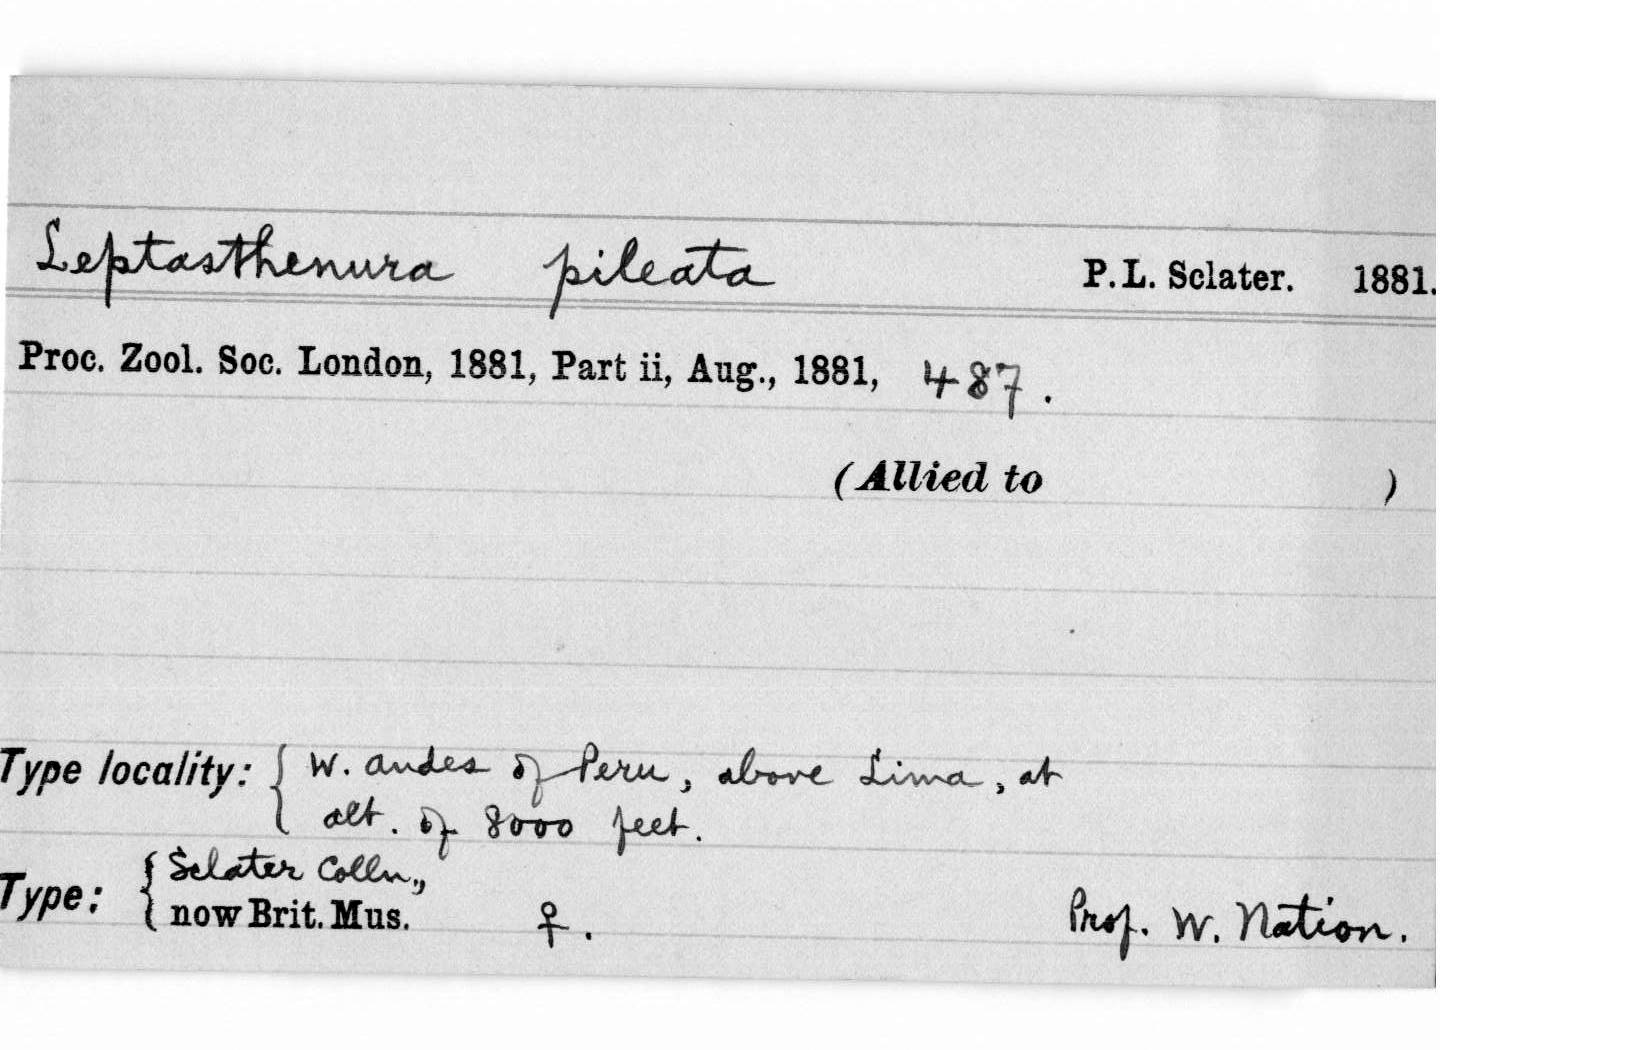 Leptasthenura pileata P. L. Sclater. 1881.
Proc. Zool. Soc. London, 1881, Part ii, Aug., 1881, 487.
(Allied to )
Type locality: { W. Andes of Peru, above Lima, at
alt. of 8000 feet.
Type: { Sclater Colln.,
now Brit. Mus. ♀. Prof. W. Nation.